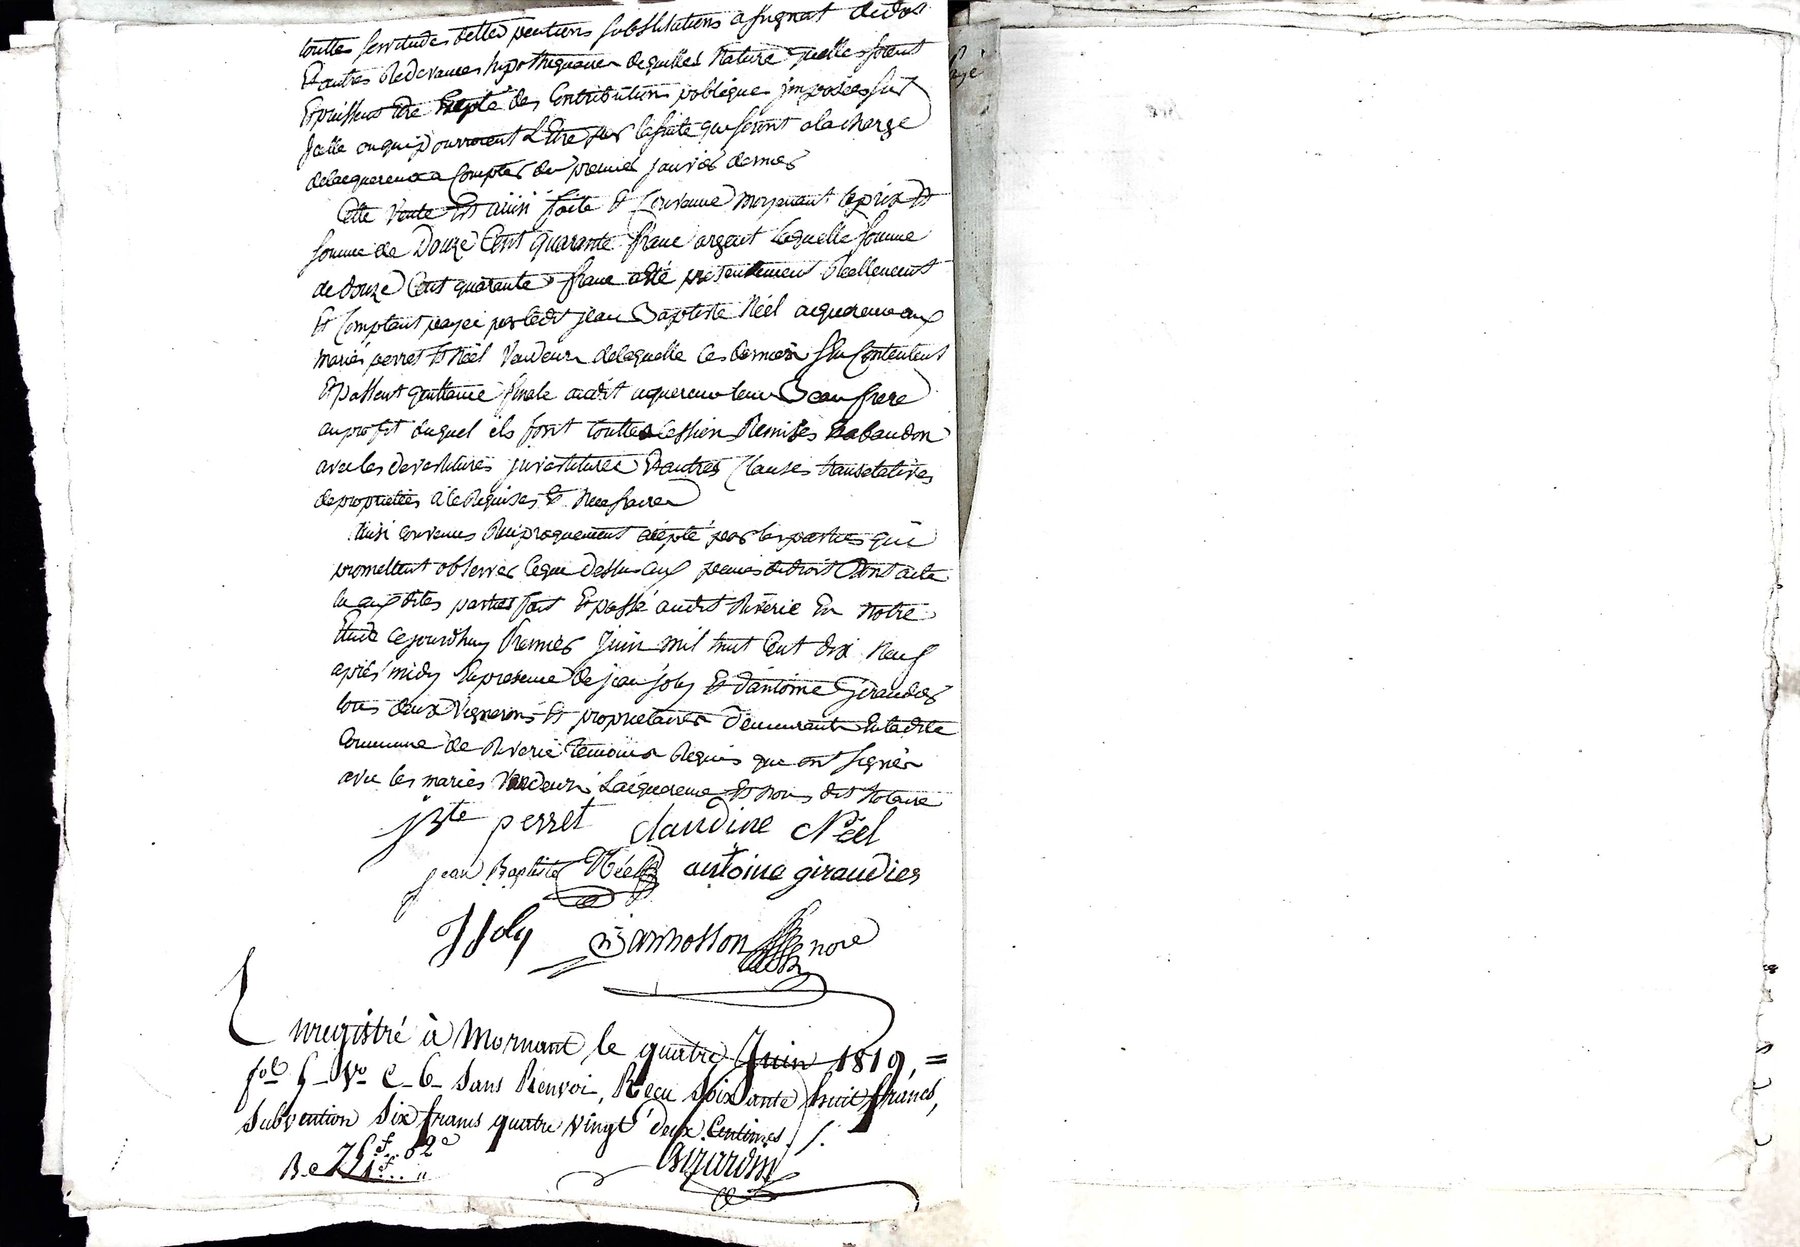 touttes servitudes dettes pentions substitutions assignat dudot
Et autres Redevances hypothequaires dequelles Nature quelles soient
Et puissent être Exepté des Contributions publiques jmposées sur
jcelle ou qui pourroient L'être par la suite que seront a la charge
delacquereux a Compter du premier janvier dernier
Cette Vente Est ainsi faite Et Convenue moyenant le prix Et
somme de Douze Cent quarante franc argent laquelle somme
de douze Cent quarante franc a été présentement Réellement
Et Comptant payée par ledit jean Baptiste Néel aiquereur aux
mariés perret Et Néel Vendeurs delaquelle ces derniers s'en Contentent
Et passent quittance finale audit aiquereur leur Beau frere
au profit duquel ils font touttes Cession Remises Et abandon
avec les devestitures jnvestitures Et autres Clauses translatives
de proprietés a ce Requises Et Necessaires
Ainsi convenus Réciproquement accepté par les parties qui
promettent observer Ceque dessus aux peines de droit Dont acte
lu aux dites parties fait Et passé audit Riverie En notre
Etude Cejourdhuy Premier Juin mil huit Cent dix Neuf
après midy En presence de jean joly Et d'antoine Giraudier
tous deux Vignerons Et proprietaires demeurants En la dite
Commune de Riverie temoins Requis que ont signés
avec les mariés Vendeurs L'aiquereur Et nous dit Notaire
jBte perret claudine Néel
jean Baptiste Néel antoine giraudier
J Joly Bannosson nore
Enregistré à Mornant le quatre Juin 1819, =
fol 5 Vo C 6 Sans Renvoi, Reçu soixante huit francs,
Subvention Six francs quatre vingt deux Centimes ./.
Girardin